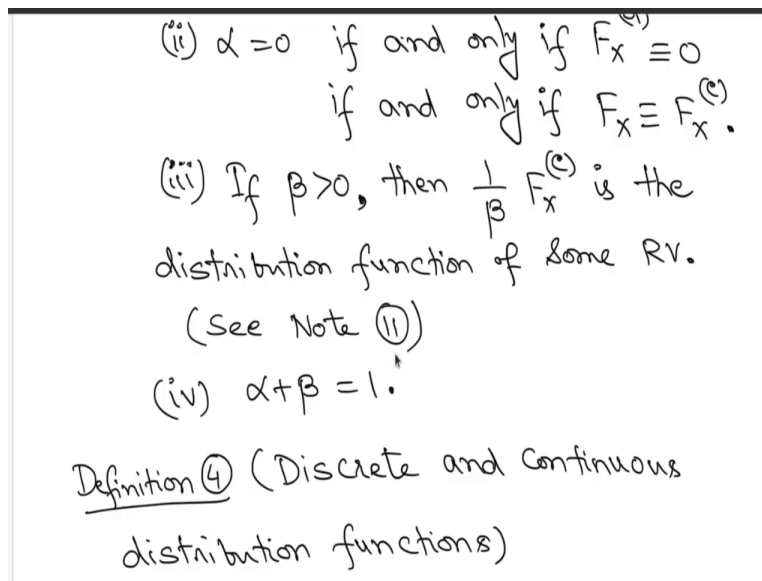 (ii) α = 0 if and only if F_X^(d) ≡ 0
if and only if F_X ≡ F_X^(c).
(iii) If β > 0, then 1/β F_X^(c) is the
distribution function of some RV.
(See Note ⑪)
(iv) α + β = 1.
Definition ④ (Discrete and continuous
distribution functions)